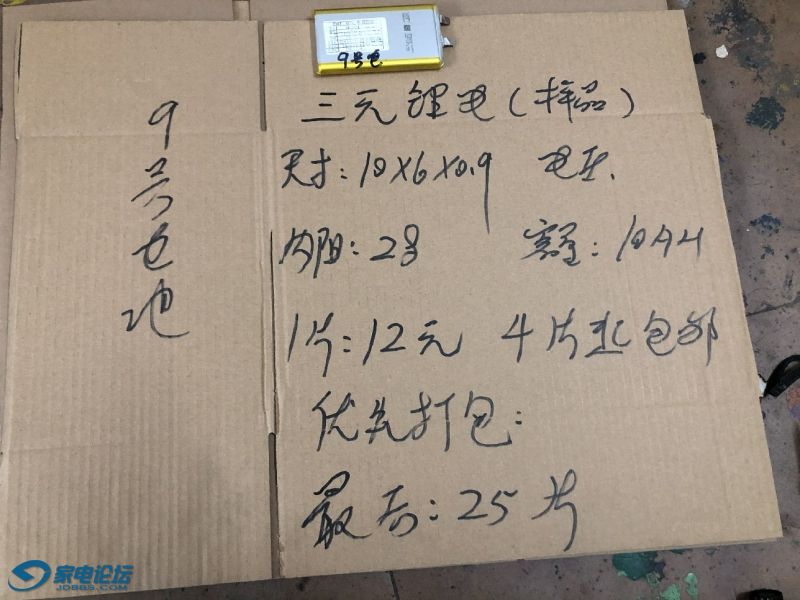 9号电
三元锂电(样品)
尺寸:10X6X0.9 电压.
内阻:28 容量:10AH
1片:12元 4片起包邮
优先打包:
最后:25片
9号电池
家电论坛
JDBBS.COM